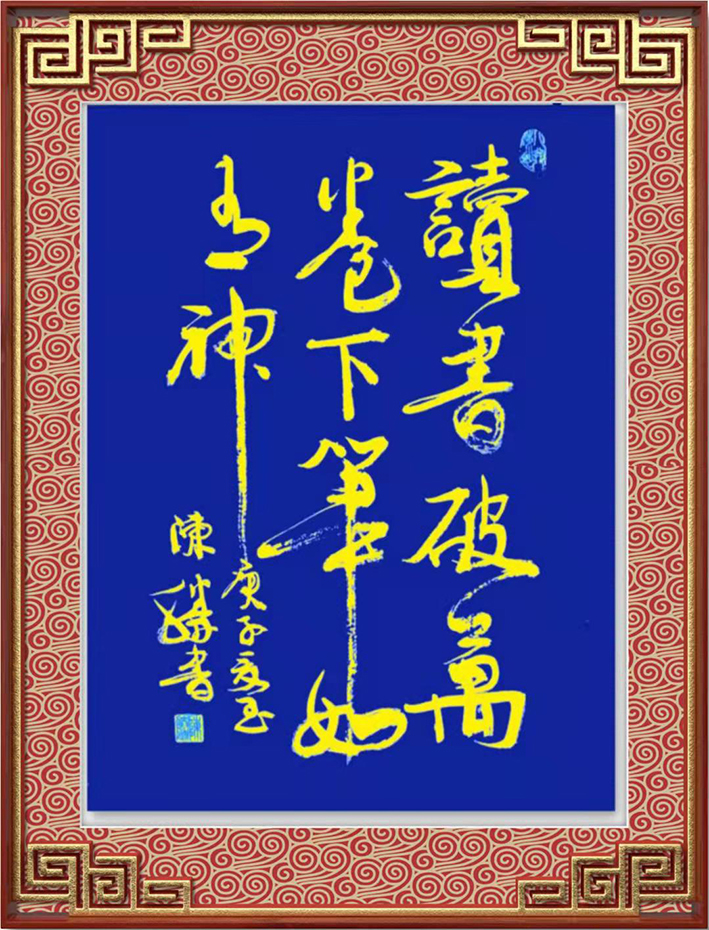 讀書破萬
卷下筆如
有神
庚子夏玉
陳勝書